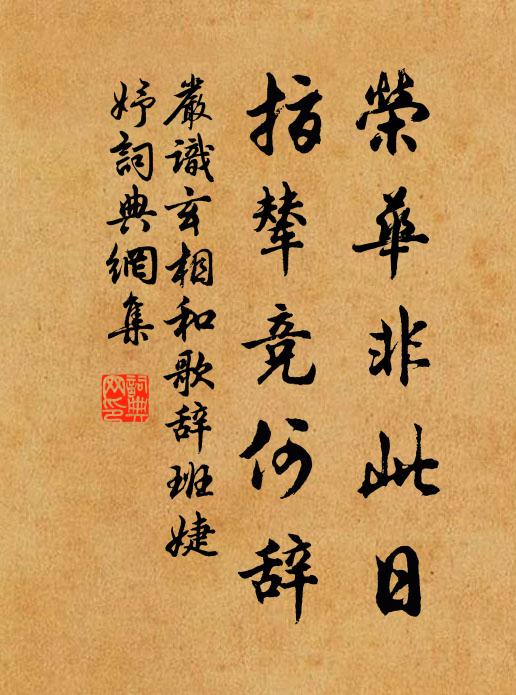 榮華非此日
指輦竞何辞
嚴識玄相和歌辞班婕
妤詞典網集
詞典
网印